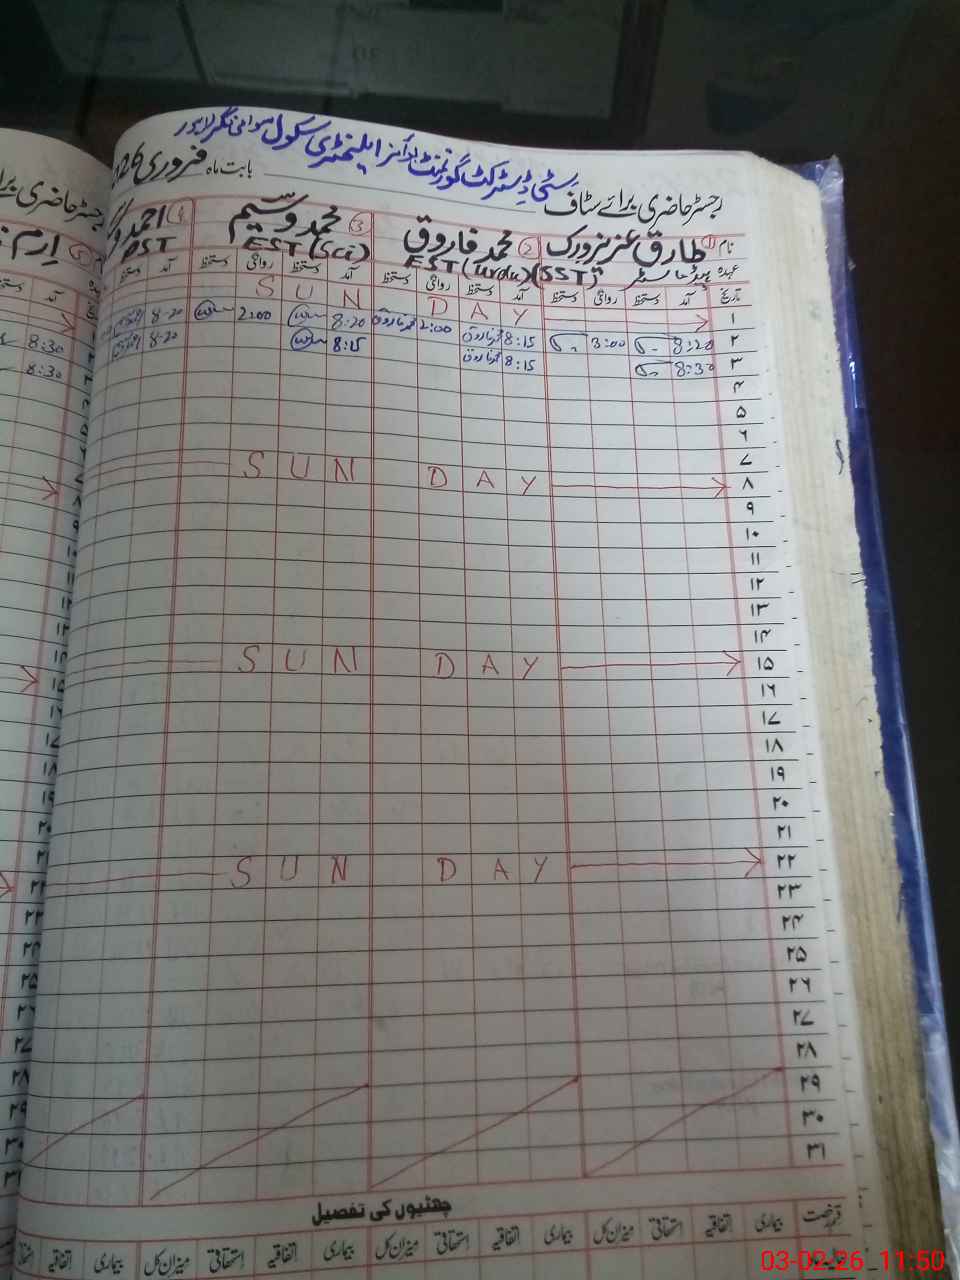 سٹی ڈسٹرکٹ گورنمنٹ بوائز ایلیمنٹری سکول
رجسٹر حاضری برائے سٹاف بابت ماہ فروری
نام ① طارق عزیز ورک ② محمد فاروق ③ محمد وسیم ④ احمد
عہدہ ہیڈ ماسٹر (SST) EST (Urdu) EST (Sci) PST
تاریخ آمد دستخط روانگی دستخط آمد دستخط روانگی دستخط آمد دستخط روانگی دستخط آمد دستخط
۱ SUN DAY
۲ 8:20 3:00 8:15 2:00 8:20 2:00 8-20
۳ 8:30 8:15 8:15 8-20
۴
۵
۶
۷
۸ SUN DAY
۹
۱۰
۱۱
۱۲
۱۳
۱۴
۱۵ SUN DAY
۱۶
۱۷
۱۸
۱۹
۲۰
۲۱
۲۲ SUN DAY
۲۳
۲۴
۲۵
۲۶
۲۷
۲۸
۲۹
۳۰
۳۱
چھٹیوں کی تفصیل
بیماری اتفاقیہ استحقاقی میزان کل بیماری اتفاقیہ استحقاقی میزان کل بیماری اتفاقیہ استحقاقی میزان کل بیماری اتفاقیہ
رجسٹر حاضری
⑤ ارم
8:30
8:30
03-02-26_11:50